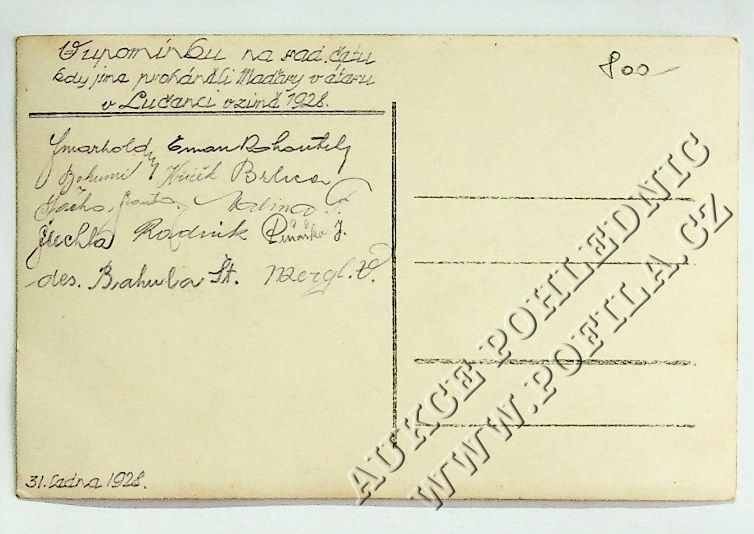 Vupomínku na rad. četu
kdy jsme proháněli Maďary v éteru
v Lučenci v zimě 1928.
800
Smarhold Eman Rohoutely
Bohumil Kučík Brlica
Kalina F.
Čuchta Radnik Piňátko J.
des. Bahula Št. Mergl. V.
31. ledna 1928.
AUKCE POHLEDNIC
WWW.POFILA.CZ